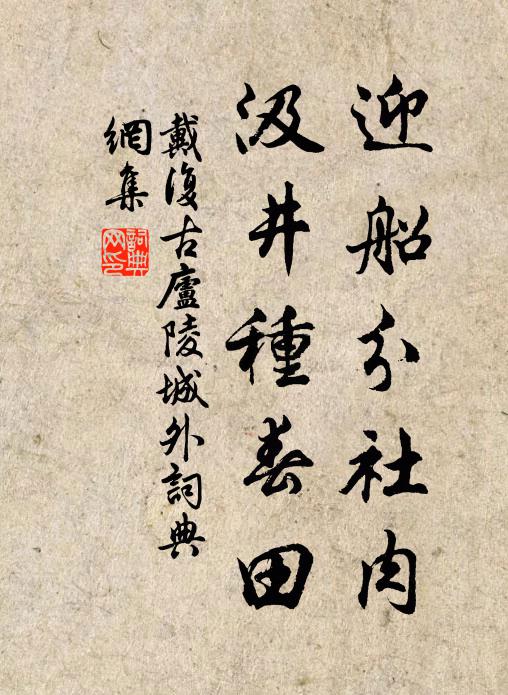 迎船分社肉
汲井種春田
戴復古廬陵城外詞典
網集
詞典
网印